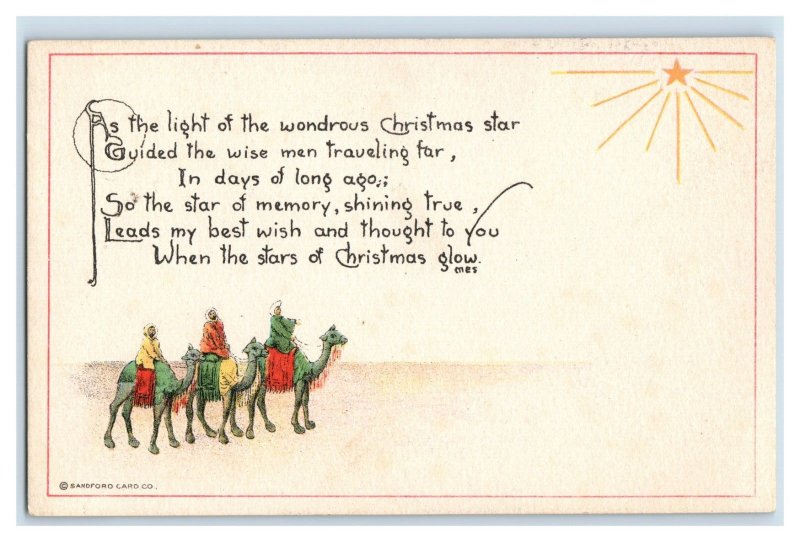 As the light of the wondrous Christmas star
Guided the wise men traveling far,
In days of long ago;
So the star of memory, shining true,
Leads my best wish and thought to you
When the stars of Christmas glow.
MES
© SANDFORD CARD CO.